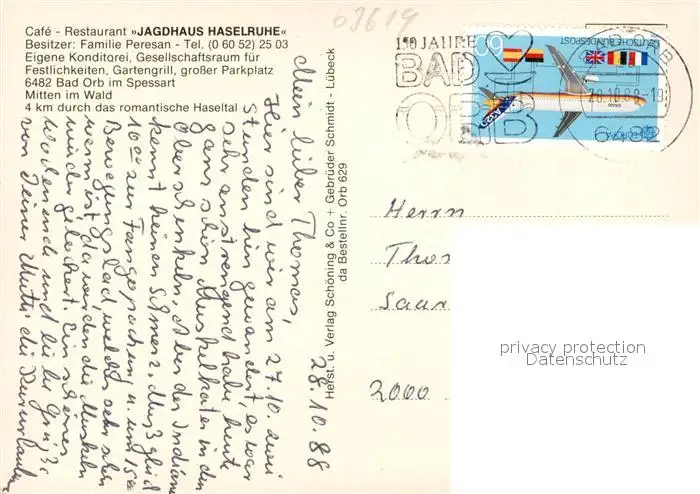 Café - Restaurant »JAGDHAUS HASELRUHE«
Besitzer: Familie Peresan - Tel. (0 60 52) 25 03
Eigene Konditorei, Gesellschaftsraum für
Festlichkeiten, Gartengrill, großer Parkplatz
6482 Bad Orb im Spessart
Mitten im Wald
4 km durch das romantische Haseltal
63619
28.10.88
Mein lieber Thomas,
Hier sind wir am 27.10. zwei
Stunden hin gewandert, es war
sehr anstrengend habe heute
ganz schön Muskelkater in den
Oberschenkeln, Aber der Indianer
kennt keinen Schmerz. Muß gleich
16°° zur Fangopackung u. um
Bewegungsbad welches sehr schön
warm ist, da werden die Muskeln
wieder gelockert. Ein schönes
Wochenende und liebe Grüße
von Deiner Mutter die Kurlauberin
Herst. u. Verlag Schöning & Co + Gebrüder Schmidt - Lübeck
da Bestellnr. Orb 629
150 JAHRE
BAD
ORB
DEUTSCHE BUNDESPOST
60
EUROPA
28.10.88-19
6482
Herrn
Saar
2000
privacy protection
Datenschutz